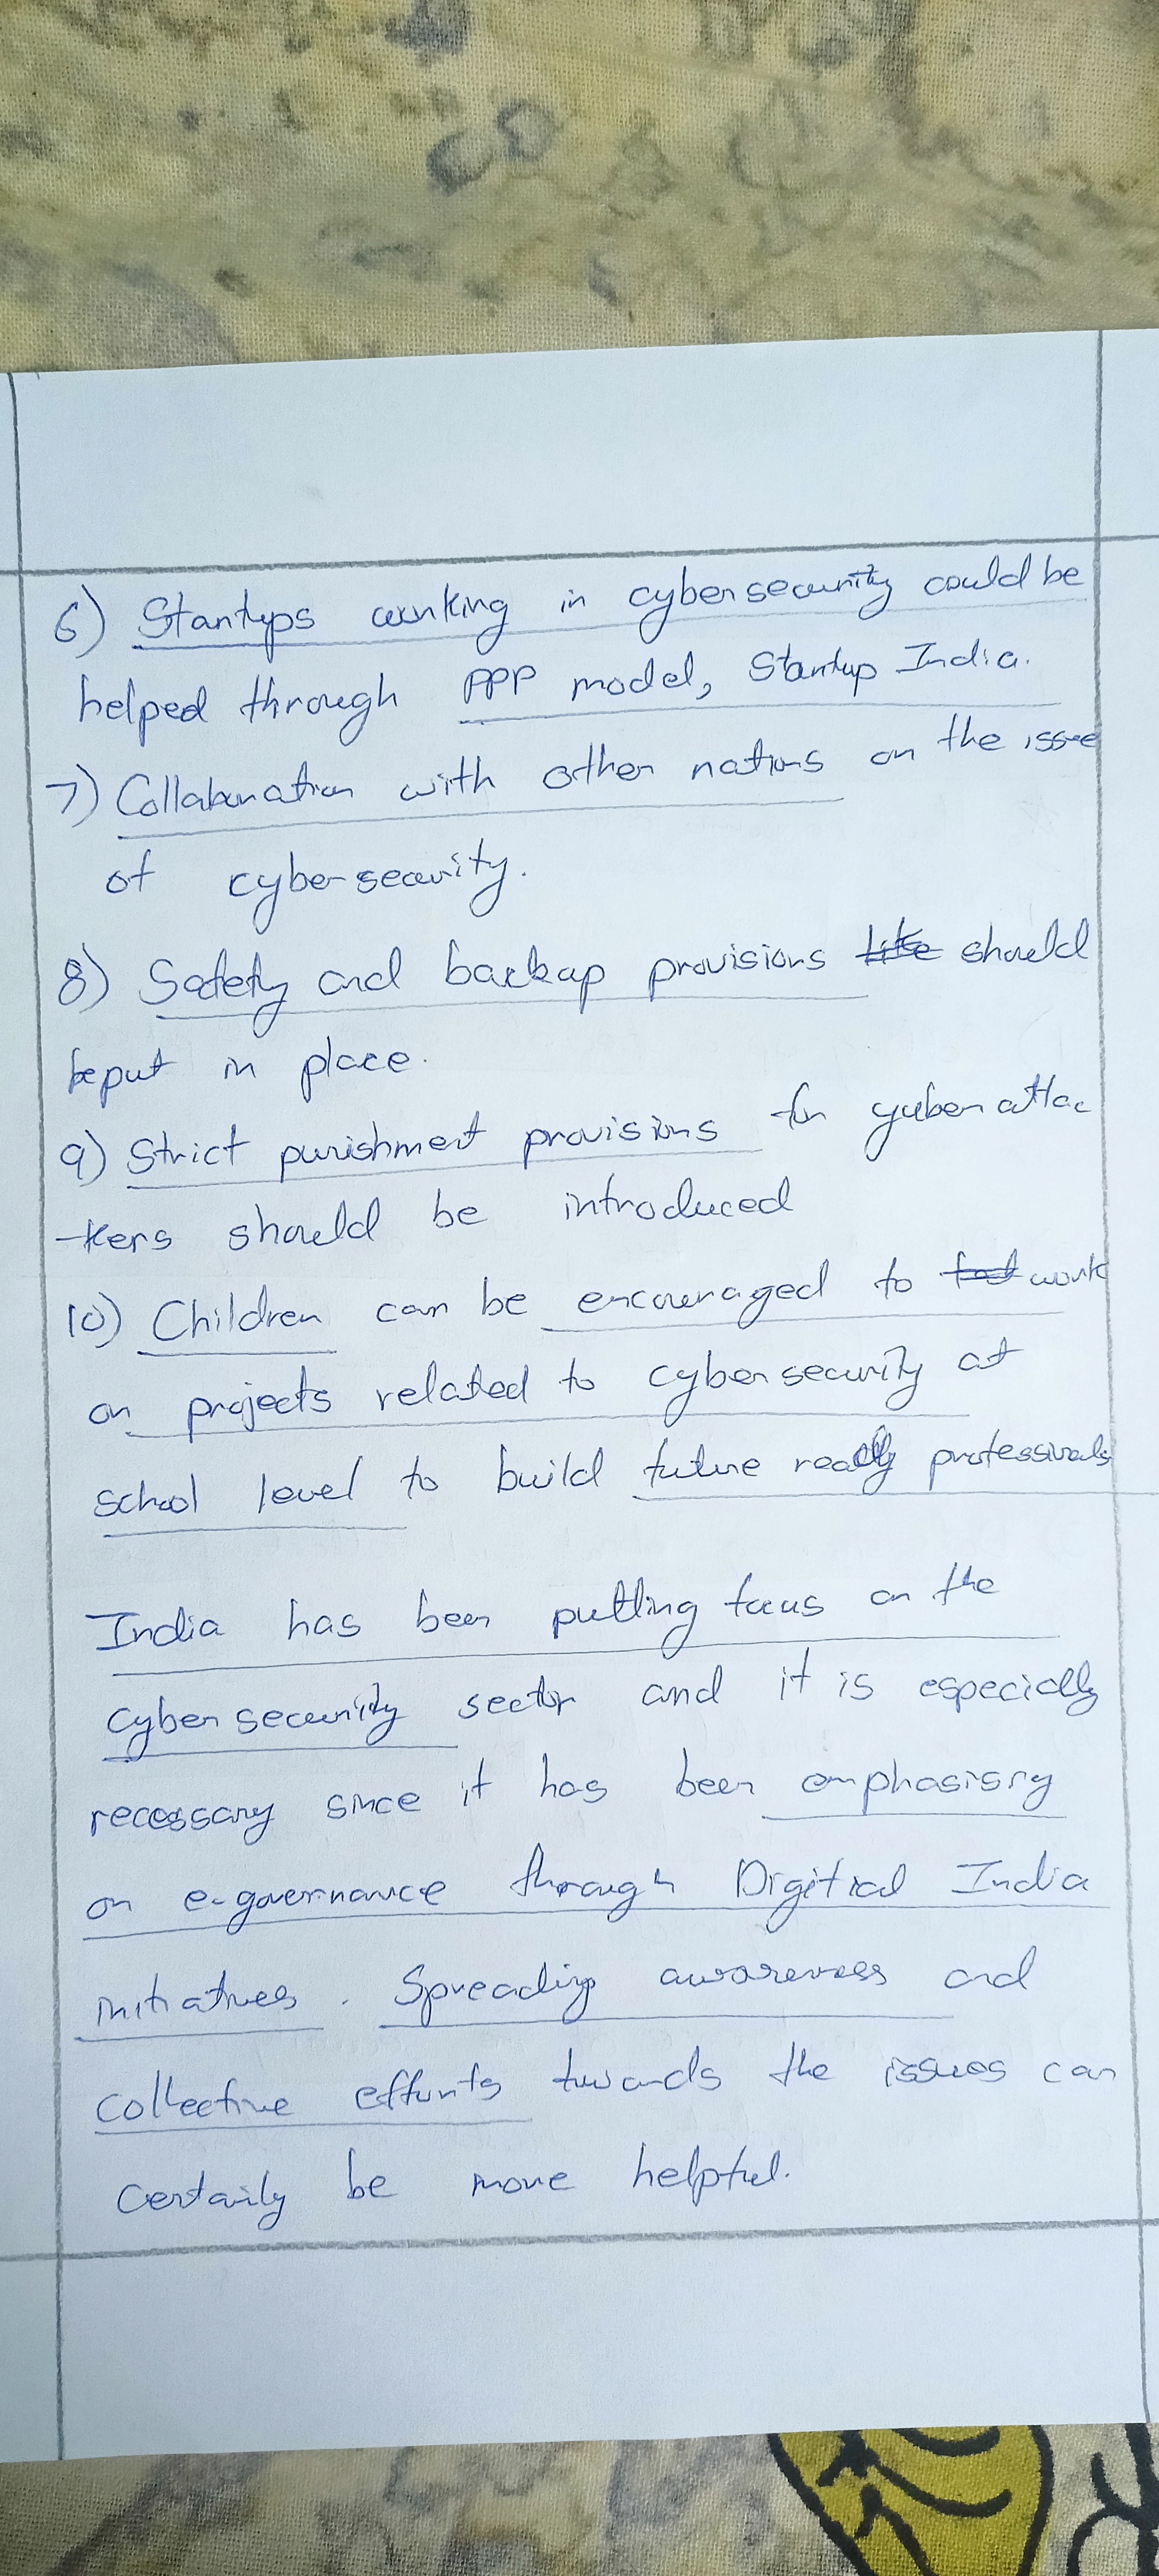 6) Startups working in cybersecurity could be
helped through PPP model, Startup India.
7) Collaboration with other nations on the issue
of cybersecurity.
8) Safety and backup provisions should
be put in place.
9) Strict punishment provisions for cyber attac
-kers should be introduced
10) Children can be encouraged to work
on projects related to cyber security at
school level to build future ready professionals
India has been putting focus on the
cyber security sector and it is especially
necessary since it has been emphasising
on e-governance through Digitial India
initiatives. Spreading awareness and
collective efforts towards the issues can
certainly be more helpful.